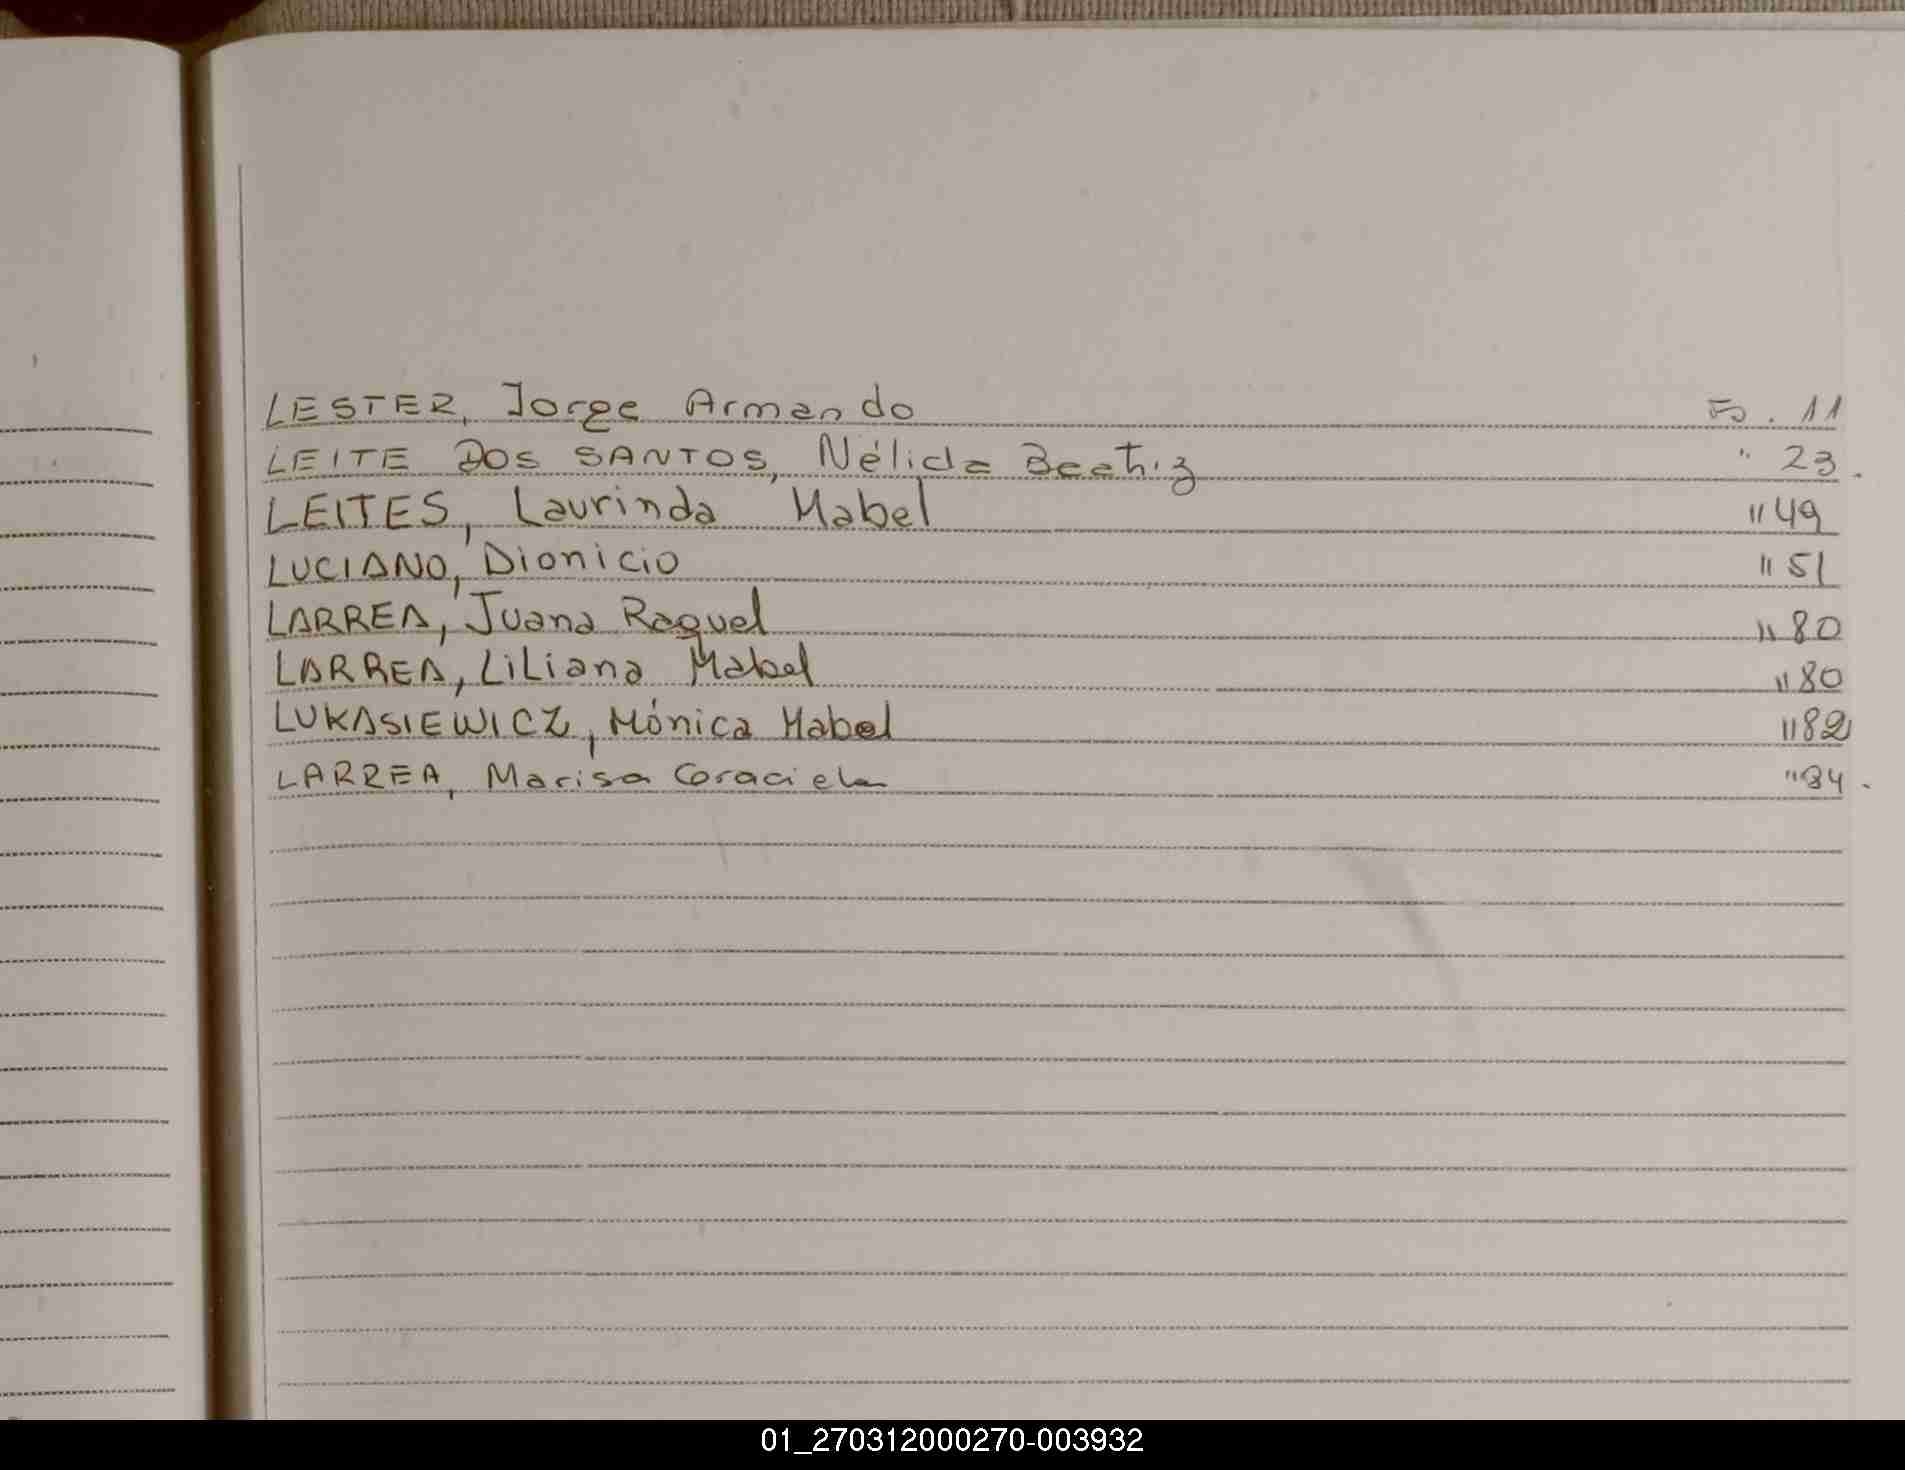 LESTER, Jorge Armando Fo. 11
LEITE DOS SANTOS, Nélida Beatriz " 23.
LEITES, Laurinda Mabel " 49
LUCIANO, Dionicio " 51
LARREA, Juana Raquel " 80
LARREA, Liliana Mabel " 80
LUKASIEWICZ, Mónica Mabel " 82
LARREA, Marisa Graciela " 84.
01_270312000270-003932